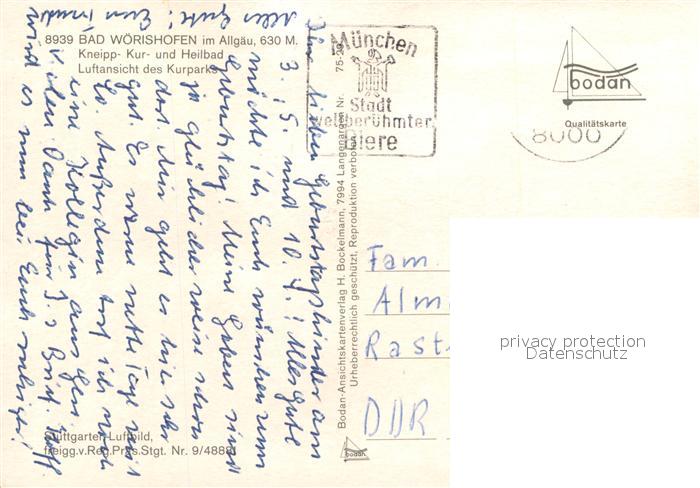 8939 BAD WÖRISHOFEN im Allgäu, 630 M.
Kneipp- Kur- und Heilbad
Luftansicht des Kurparks
Ihr lieben Geburtstagskinder am
3., 5. und 10. 4.! Alles Gute
möchte ich Euch wünschen zum
Geburtstag! Meine
ja glücklicherweise schon
das. Mir geht es hier sehr
gut. Es waren nette Tage mit
So Außerdem traf ich noch
eine Kollegin aus
Vielen Dank für
wird es nun bei Euch ruhiger!
Alles Gute! Eure
Stuttgarter Luftbild,
freigg.v.Reg.Präs.Stgt. Nr. 9/48881
Bodan-Ansichtskartenverlag H. Bockelmann, 7994 Langenargen Nr. 75-29
Urheberrechtlich geschützt, Reproduktion verboten
bodan
München
Stadt
weltberühmter
Biere
bodan
Qualitätskarte
8000
Fam.
Alm
Rast
DDR
privacy protection
Datenschutz